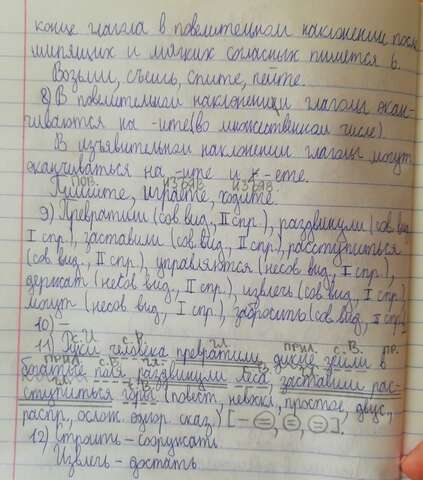 конце глагола в повелительном наклонении после
шипящих и мягких согласных пишется ь.
Возьми, съешь, спите, пейте.
8) В повелительном наклонении глаголы окан-
чиваются на -ите(во множественном числе)
В изъявительном наклонении глаголы могут
оканчиваться на -ите и -ете.
ПОВ. ИЗЪЯВ. ИЗЪЯВ.
Пишите, играете, ходите.
9) Превратили (сов. вид., II спр.), раздвинули (сов. вид.
I спр.), заставили (сов. вид., II спр.), расступиться
(сов. вид., II спр.), управляются (несов. вид., I спр.),
держат (несов. вид., II спр.), извлечь (сов. вид., I спр.)
могут (несов. вид., I спр.), забросить (сов. вид., II спр.)
10) —
с. И с. Р. гл. прил. с. В. пр.
11) Руки человека превратили дикие земли в
прил. с. В. гл. с. В. гл.
богатые поля, раздвинули леса, заставили рас-
гл. с. В.
ступиться горы (повест., невоскл., простое, двус.,
распр., ослож. однор. сказ.) [- =, =, =].
12) Строить - сооружать
Извлечь - достать